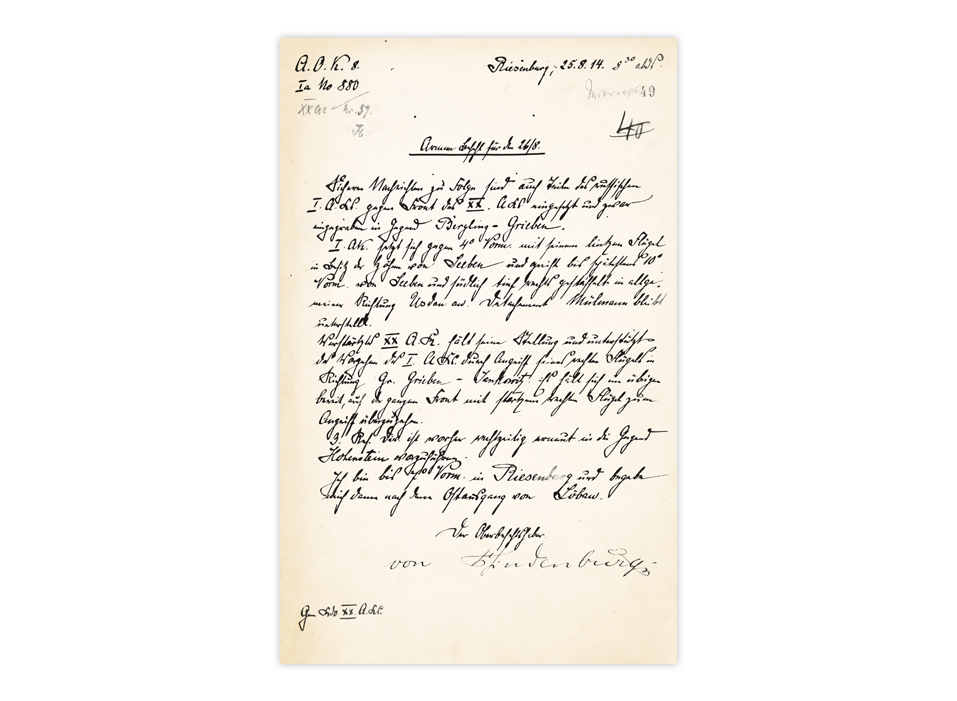 A.O.K. 8.
Riesenburg, 25.8.14. 8³⁰ abds.
Ia No 880
49
XX AK Nr. 59.
40
Armee Befehl für den 26/8.
Sicheren Nachrichten zu Folge sind auch Teile des russischen
I. A.Ks. gegen Front des XX. A.Ks eingesetzt und zwar
eingegraben in Gegend Bergling - Grieben.
I. A.K. setzt sich gegen 4⁰ Vorm. mit seinem linken Flügel
in Besitz der Höhen von Seeben und greift bis spätestens 10⁰
Vorm. von Seeben und südlich tief rechts gestaffelt in allge-
meiner Richtung Usdau an. Detachement Mülmann bleibt
unterstellt.
Verstärktes XX A.K. hält seine Stellung und unterstützt
das Vorgehen des I. A.Ks. durch Angriff seines rechten Flügels in
Richtung Gr. Grieben - Jankowitz. Es hält sich im übrigen
bereit, auf der ganzen Front mit starkem rechten Flügel zum
Angriff überzugehen.
3. Res. Div. ist vorher rechtzeitig erneut in die Gegend
Hohenstein vorzuführen.
Ich bin bis Vorm. in Riesenburg und begebe
mich dann nach dem Ostausgang von Löbau.
Der Oberbefehlshaber.
von Hindenburg.
Gen Kdo XX. A.Ks.